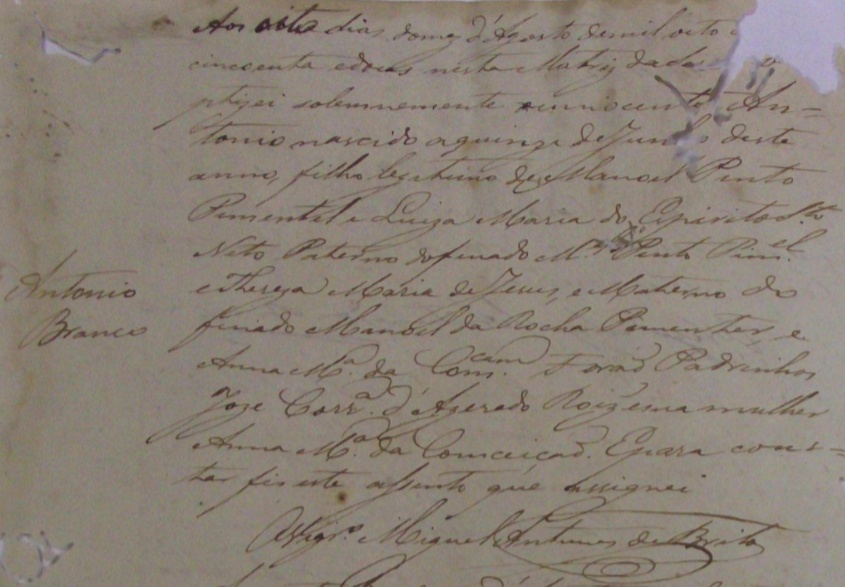 Aos oito dias do mez d'Agosto de mil oito
cincoenta e dous nesta Matriz dada
ptizei solemnemente innocente An=
tonio nascido a quinze de Junho deste
anno, filho legitimo de Manoel Pinto
Pimentel e Luiza Maria do Espirito Sto
Neto Paterno do finado Mel Pinto Pimel
e Thereza Maria de Jesus, e Materno do
Antonio
finado Manoel da Rocha Pimentel, e
Branco
Anna Ma. da Comcam. Forão Padrinhos
Joze Corra. d'Azeredo Roiz e sua mulher
Anna Ma. da Conceição. E para cons=
tar fiz este assento que assignei
O Vigro. Miguel Antunes de Brito